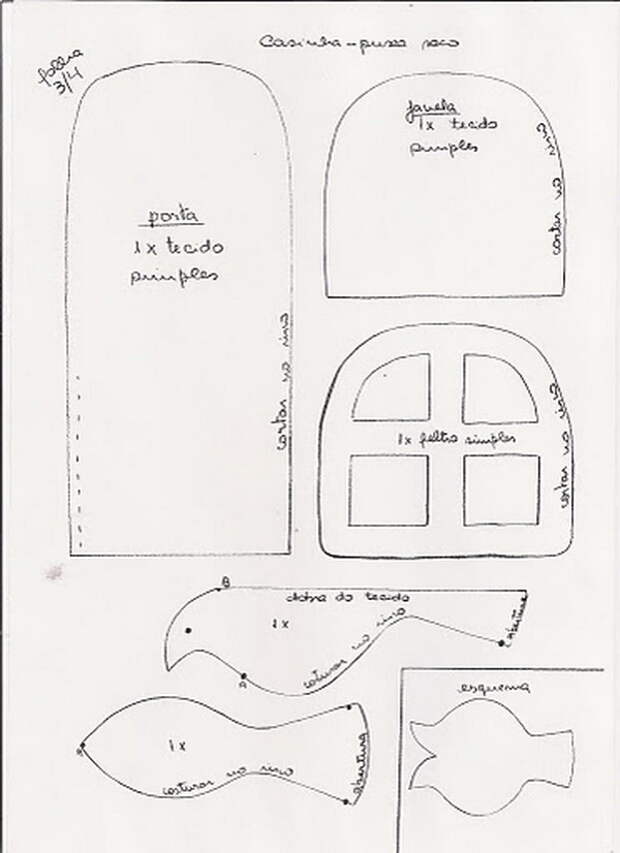 Casinha - puxa saco
folha
3/4
porta
1x tecido
simples
cortar no risco
janela
1x tecido
simples
cortar no risco
1x feltro simples
cortar no risco
B
dobra do tecido
1x
A
costurar no risco
abertura
1x
costurar no risco
abertura
esquema